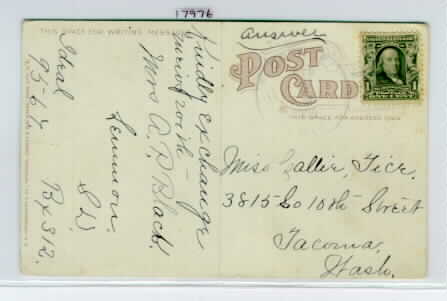 17976
THIS SPACE FOR WRITING MESSAGES
answer
POST
CARD
THIS SPACE FOR ADDRESS ONLY
Kindly exchange
Mrs A. P. Black.
Lemmon.
S.D.
Bx 312.
Ideal
Miss Callie, Fice,
3815 So 10th Street
Tacoma,
Wash.
1